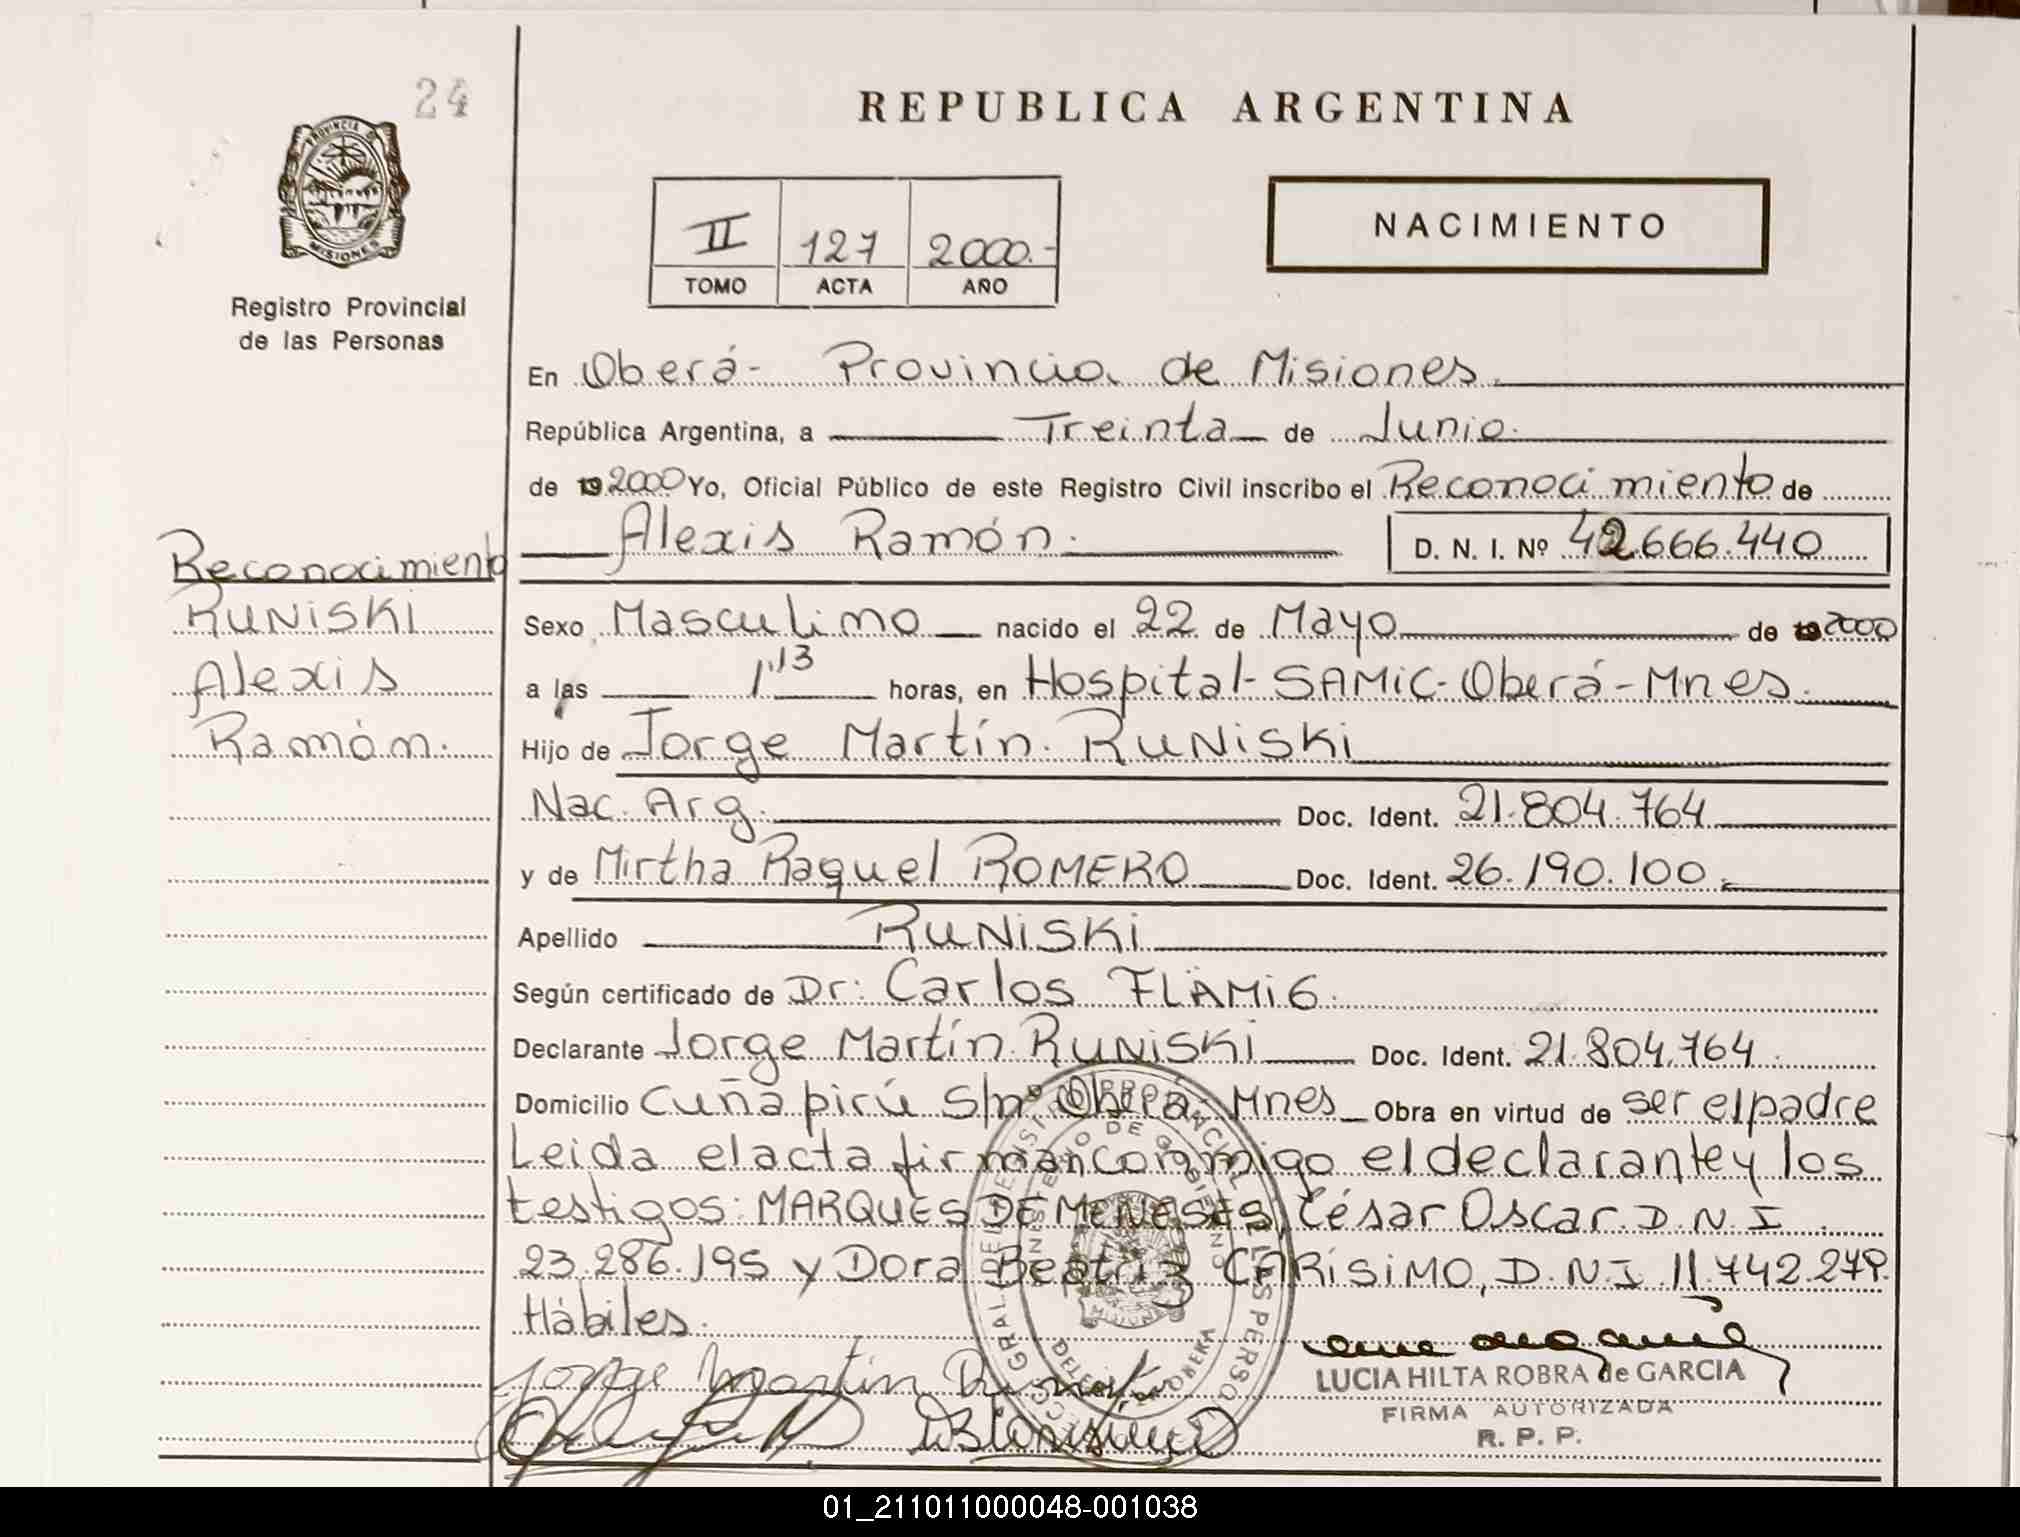 24
PROVINCIA DE
MISIONES
Registro Provincial
de las Personas
REPUBLICA ARGENTINA
II 127 2000.-
TOMO ACTA AÑO
NACIMIENTO
En Oberá- Provincia de Misiones.
República Argentina, a Treinta de Junio.
de 19 2000 Yo, Oficial Público de este Registro Civil inscribo el Reconocimiento de
Alexis Ramón. D. N. I. Nº 42.666.440
Reconocimiento
RUNiSKi
Alexis
Ramón.
Sexo Masculino nacido el 22 de Mayo de 19 2000
a las 1,13 horas, en Hospital- SAMiC- Oberá- Mnes.
Hijo de Jorge Martín. RUNiSKi
Nac. Arg. Doc. Ident. 21.804.764
y de Mirtha Raquel ROMERO Doc. Ident. 26.190.100.
Apellido RUNiSKi
Según certificado de Dr. Carlos FLAMiG.
Declarante Jorge Martín RUNiSKi Doc. Ident. 21.804.764.
Domicilio Cuña pirú S/nº Oberá Mnes Obra en virtud de ser el padre
Leida el acta firman conmigo el declarante y los
testigos: MARQUES DE MENESES, César Oscar. D. N. I
23.286.195 y Dora Beatriz CARiSiMO, D.N.I 11.742.279.
Hábiles.
Jorge Martin
LUCIA HILTA ROBRA de GARCIA
FIRMA AUTORIZADA
R. P. P.
01_211011000048-001038